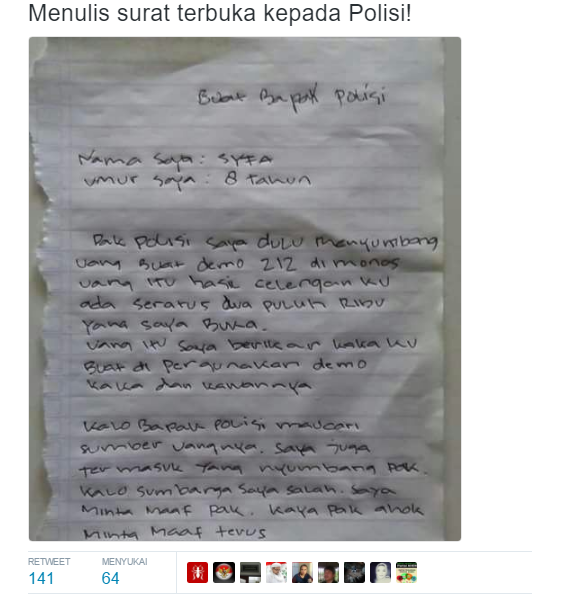 Menulis surat terbuka kepada Polisi!
Buat Bapak Polisi
Nama Saya : SYFA
Umur Saya : 8 Tahun
Pak Polisi saya dulu menyumbang
Uang Buat demo 212 di monas
Uang itu hasil celengan ku
ada seratus dua puluh Ribu
Yang saya Buka.
Uang itu Saya berikan kaka ku
Buat di Pergunakan demo
kaka dan kawannya
Kalo Bapak Polisi maucari
sumber uangnya. Saya juga
termasuk Yang nyumbang Pak.
Kalo Sumbanga Saya Salah. Saya
Minta Maaf Pak. Kaya Pak ahok
Minta Maaf terus
RETWEET MENYUKAI
141 64